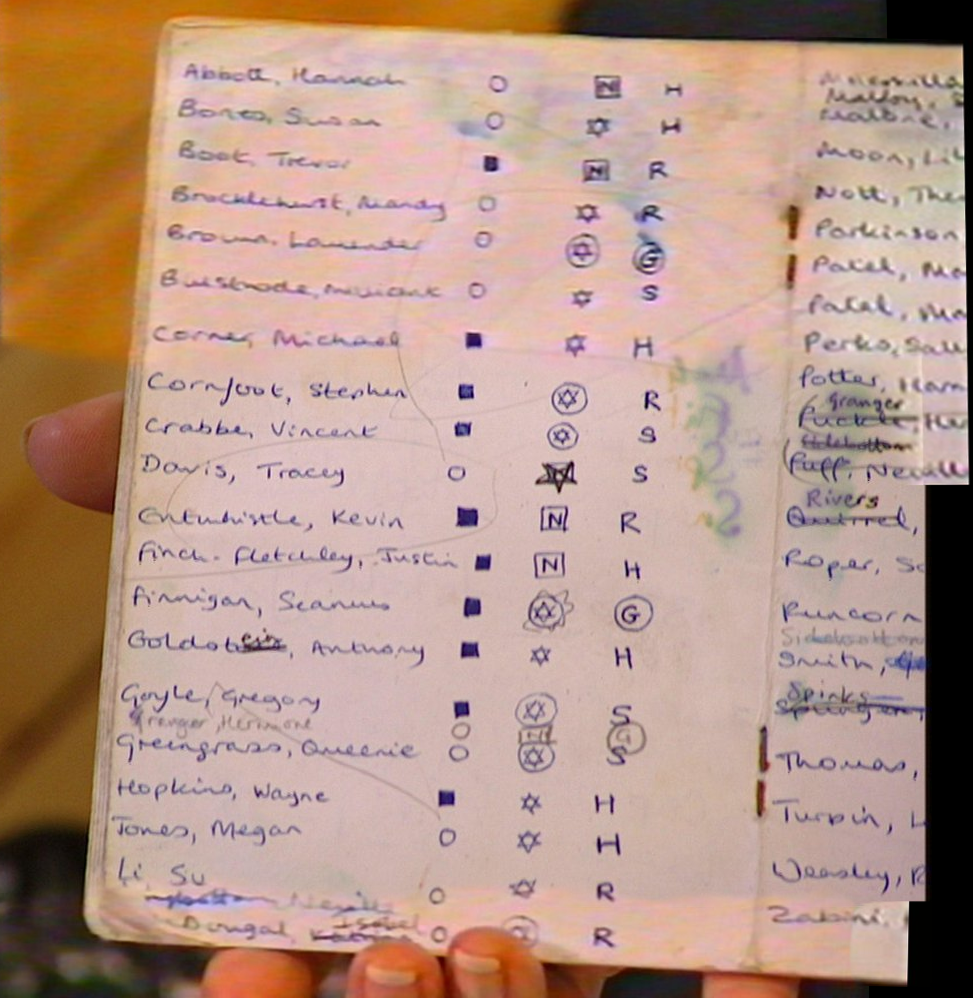 Abbott, Hannah N H
Bones, Susan H
Boot, Trevor N R
Brocklehurst, Mandy R
Brown, Lavender G
Bulstrode, Millicent S
Corner, Michael H
Cornfoot, Stephen R
Crabbe, Vincent S
Davis, Tracey S
Entwhistle, Kevin N R
Finch-Fletchley, Justin N H
Finnigan, Seamus G
Goldstein, Anthony H
Goyle, Gregory S
Granger, Hermione G
Greengrass, Queenie S
Hopkins, Wayne H
Jones, Megan H
Li, Su R
Neville
Isobel
Dougal, R
Malfoy,
Malone,
Moon, Lil
Nott, The
Parkinson
Patel, Ma
Patel, Ma
Perks, Sall
Potter, Harr
Granger
Puckle, Her
Sidebottom
Puff, Nevill
Rivers
Quirrel,
Roper, So
Runcorn
Sidebottom
Smith,
Spinks
Spungen,
Thomas,
Turpin, L
Weasley, R
Zabini,